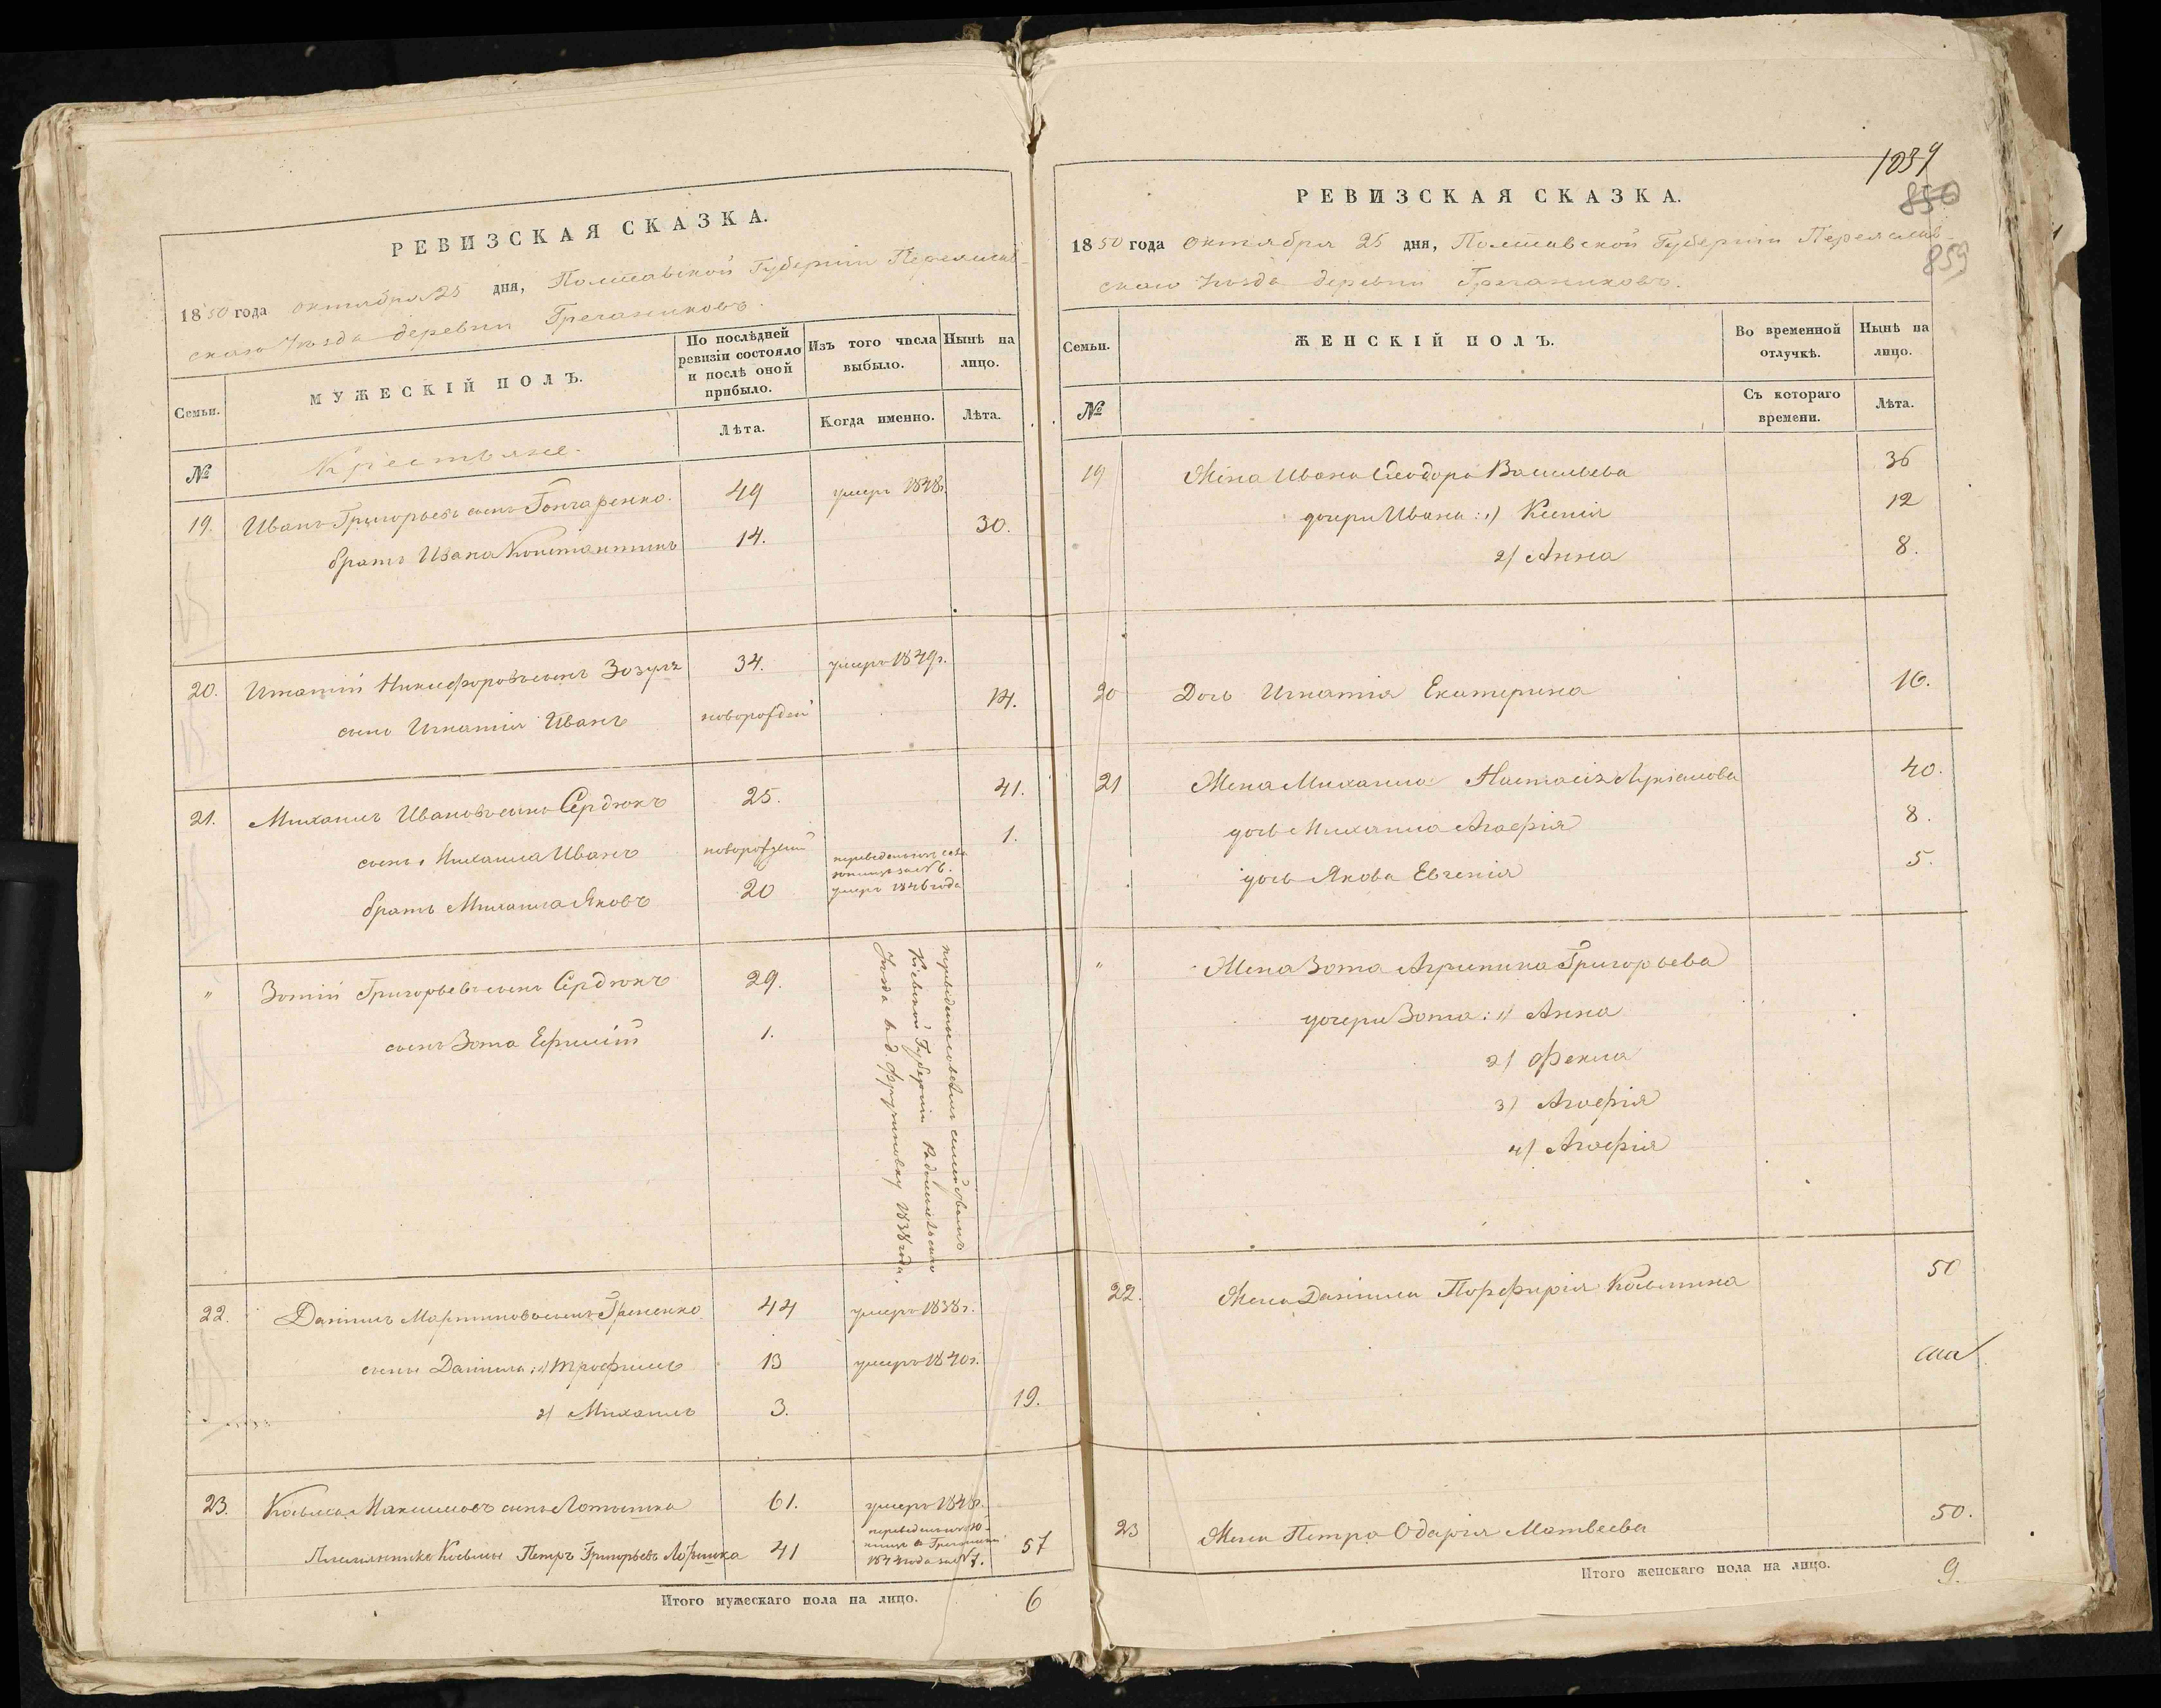 РЕВИЗСКАЯ СКАЗКА.
1850 года октября 25 дня, Полтавской Губерніи Переяслав-
скаго Уѣзда деревни Гречаниковъ.
Семьи.
МУЖЕСКІЙ ПОЛЪ.
По послѣдней ревизіи состояло и послѣ оной прибыло.
Изъ того числа выбыло.
Нынѣ на лицо.
№
Лѣта.
Когда именно.
Лѣта.
Крестьяне.
19. Иванъ Григорьевъ сынъ Гончаренко. 49 умеръ 1848г.
братъ Ивана Константинъ 14. 30.
20. Игнатій Никифоровъ сынъ Зозуля 34. умеръ 1849г.
сынъ Игнатія Иванъ новорожден 14.
21. Михаилъ Ивановъ сынъ Сердюкъ 25. 41.
сынъ Михаила Иванъ новорожден 1.
братъ Михаила Яковъ 20 умеръ 1846 года
" Зотій Григорьевъ сынъ Сердюкъ 29.
сынъ Зота Ефимій 1.
Кіевской Губерніи Радомысльскаго
Уѣзда въ д. 1838 года.
22. Даніилъ Мартиновъ сынъ 44 умеръ 1838г.
сыны Даніила: 1) Трофимъ 13 умеръ 1840г.
2) Михаилъ 3. 19.
23. Козьма Максимовъ сынъ 61. умеръ 1848г.
Племянникъ Козьмы Петръ Григорьевъ 41 57
Итого мужескаго пола на лицо. 6
1039
850
859
РЕВИЗСКАЯ СКАЗКА.
1850 года октября 25 дня, Полтавской Губерніи Переяслав-
скаго Уѣзда деревни Гречаниковъ.
Семьи.
ЖЕНСКІЙ ПОЛЪ.
Во временной отлучкѣ.
Нынѣ на лицо.
№
Съ котораго времени.
Лѣта.
19 Жена Ивана Ѳеодора Васильева 36
дочери Ивана: 1) Ксенія 12
2) Анна 8.
20 Дочь Игнатія Екатерина 16.
21 Жена Михаила Настасія 40.
дочь Михаила Агафія 8.
дочь Якова Евгенія 5.
" Жена Зота Агрипина Григорьева
дочери Зота: 1) Анна
2) Фекла
3) Агафія
4) Агафія
22. Жена Даніила Порфирія Козьмина 50
23 Жена Петра Одарія Матвеева 50.
Итого женскаго пола на лицо. 9.